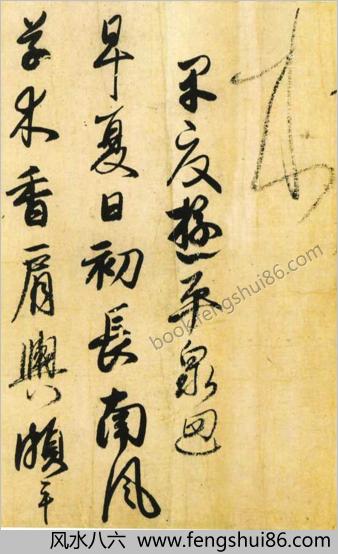 早夏遊平泉迴
早夏日初長南風
草木香肩輿頗平
book.fengshui86.com
风水八六 www.fengshui86.com